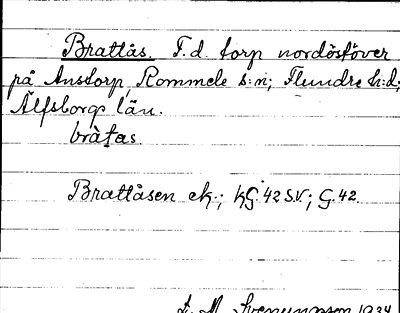 Brattås. F.d. torp nordöstöver
på Anstorp, Rommele s:n; Flundre h:d;
Älfsborgs län.
bràtas
Brattåsen ek.; KG. 42 S.V.; G. 42.
A. M. Svenungsson 1934